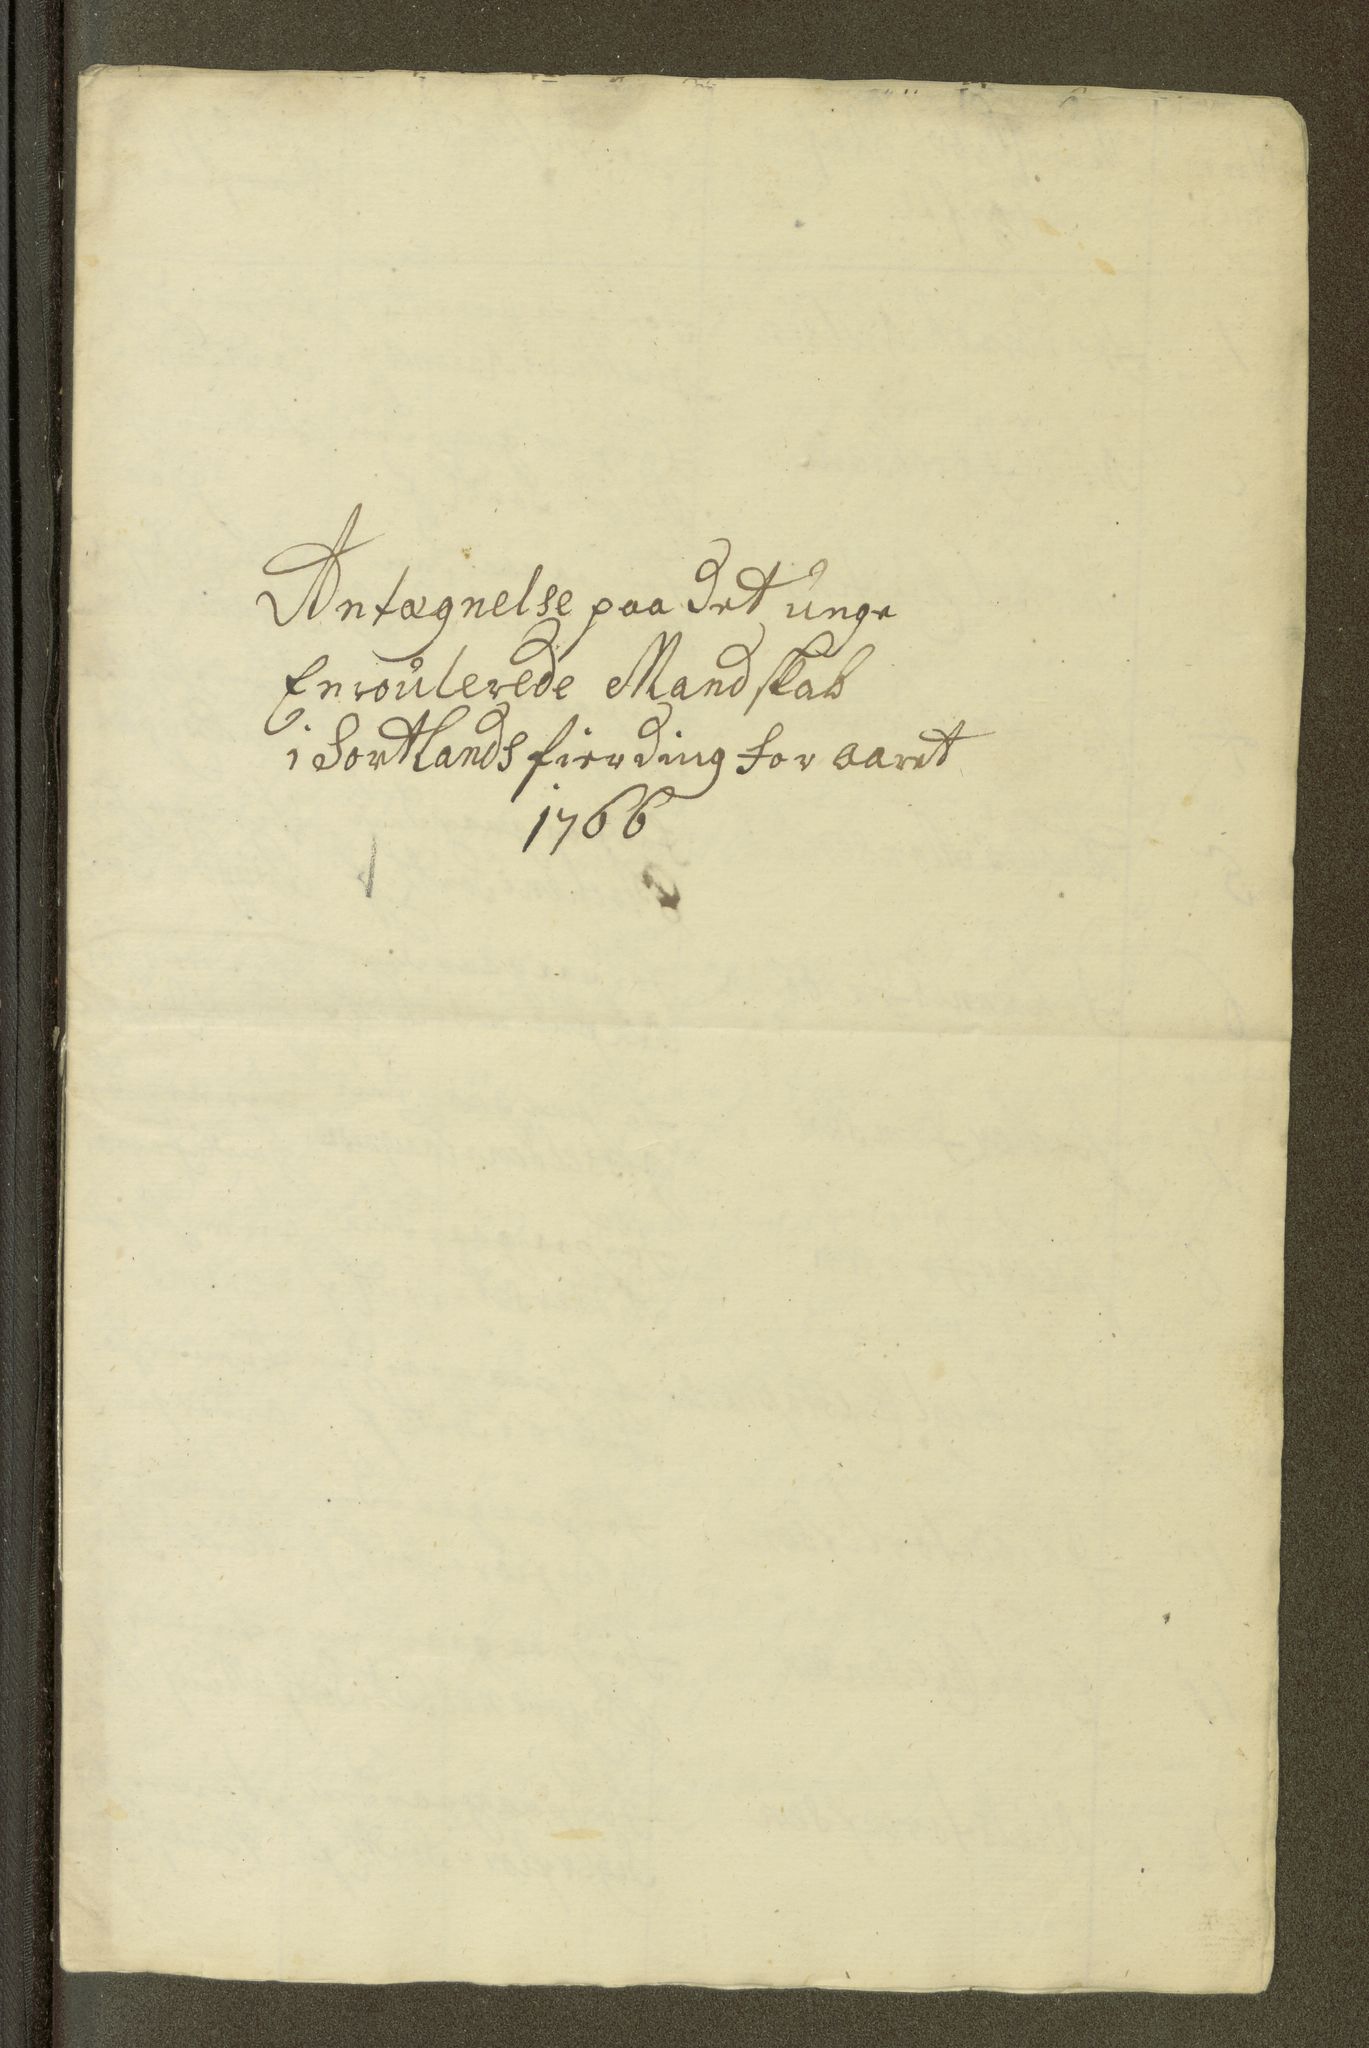 Antægnelse paa det unge
Enroulerede Mandskab
i Sortlands fierding for aaret
1766